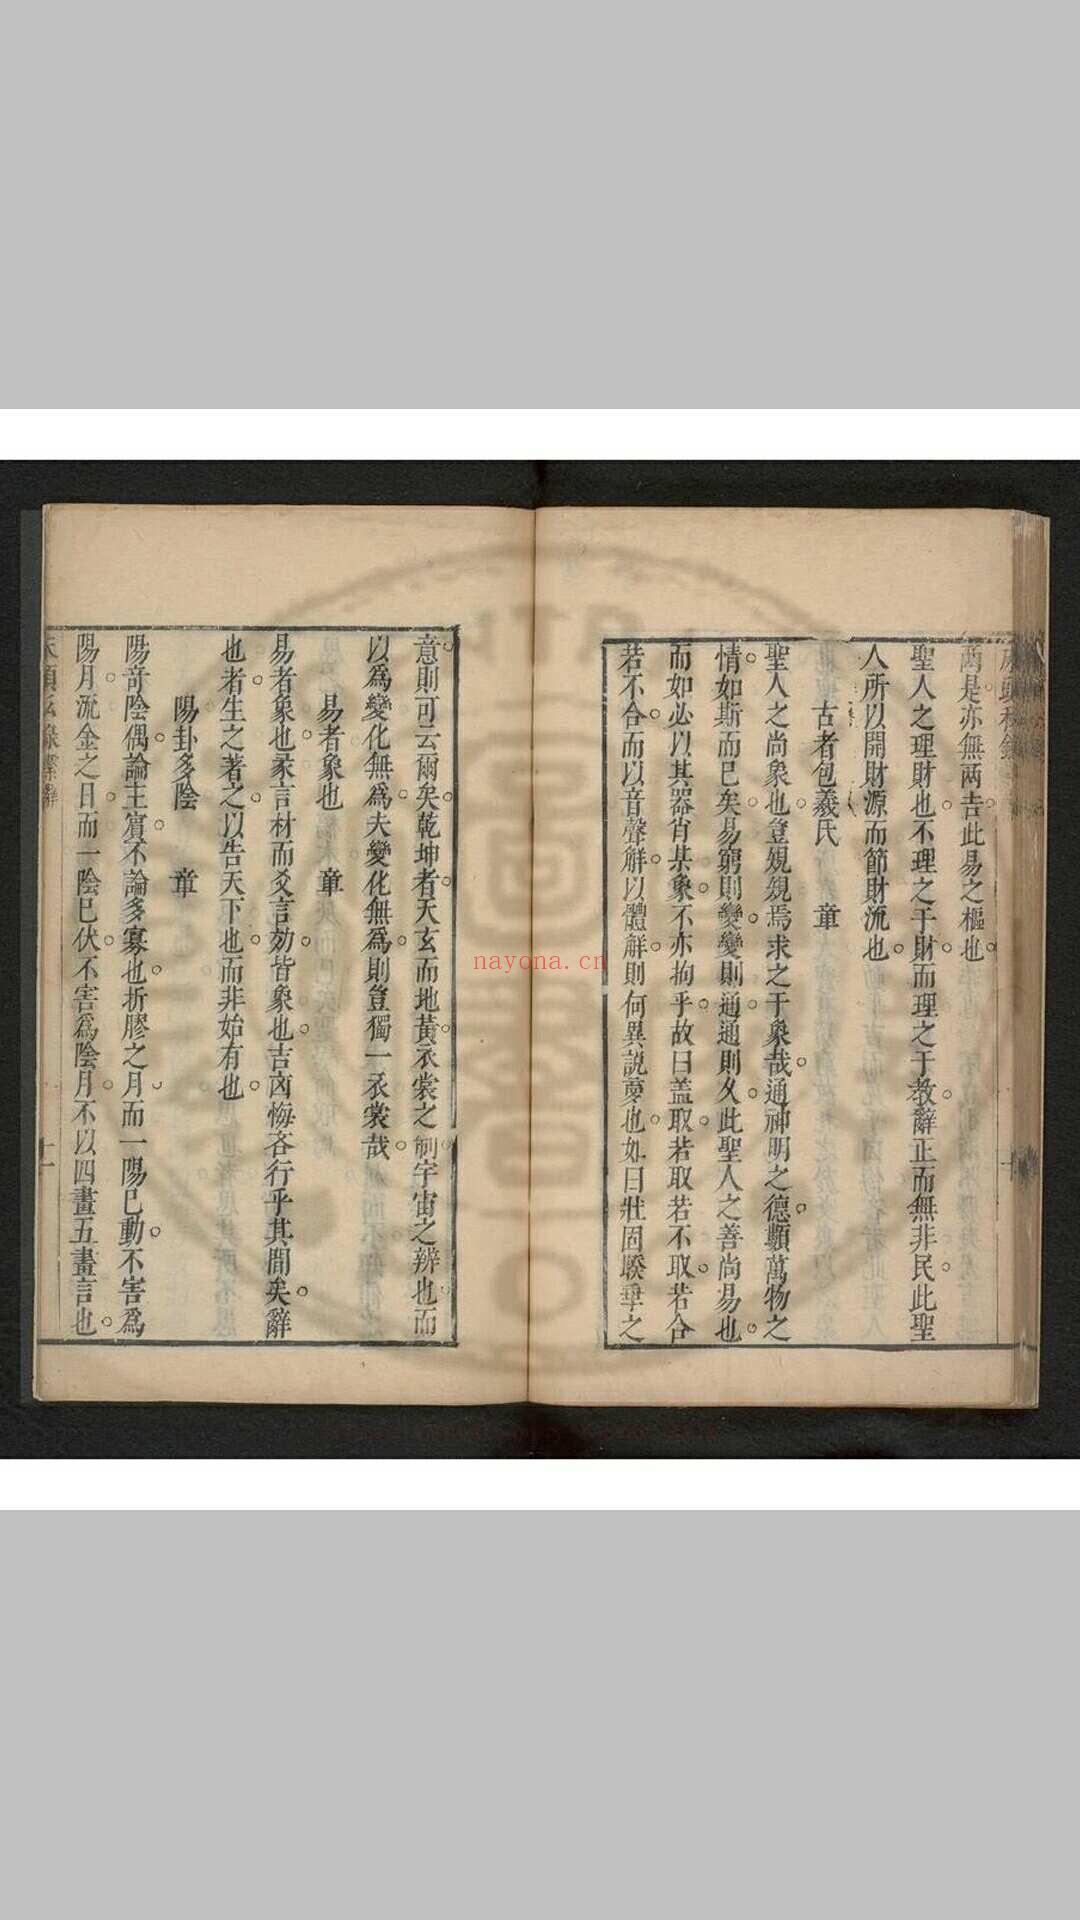 兩是亦無兩吉此易之樞也
聖人之理財也不理之于財而理之于教辭正而無非民此聖
人所以開財源而節財流也
古者包羲氏　章
聖人之尚象也豈規規焉求之于象哉通神明之德類萬物之
情如斯而已矣易窮則變變則通通則久此聖人之善尚易也
而如必以其器肖某象不亦拘乎故曰盖取若取若不取若合
若不合而以音聲解以體解則何異説夢也如曰壯固睽乖之
意則可云爾矣乾坤者天玄而地黃衣裳之制宇宙之辨也而
以為變化無為夫變化無為則豈獨一衣裳哉
易者象也　章
易者象也彖言材而爻言効皆象也吉凶悔吝行乎其間矣辭
也者生之著之以告天下也而非始有也
陽卦多陰　章
陽奇陰偶論主賓不論多寡也折膠之月而一陽已動不害為
陽月流金之日而一陰已伏不害為陰月不以四畫五畫言也
十一
nayona.cn